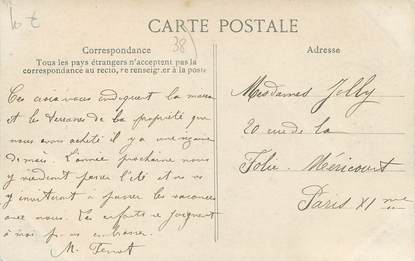 38
CARTE POSTALE
Correspondance
Tous les pays étrangers n'acceptent pas la
correspondance au recto, se renseigner à la poste
Adresse
indiquent la
et les terrasses de la propriété que
nous avons acheté il y a une
de mois. L'année prochaine nous
y viendront passer l'été et
y inviteront à passer les vacances
avec nous. Les enfants se joignent
à moi embrasser.
M.
Mesdames Jolly
20 rue de la
Folie-Méricourt
Paris XI me